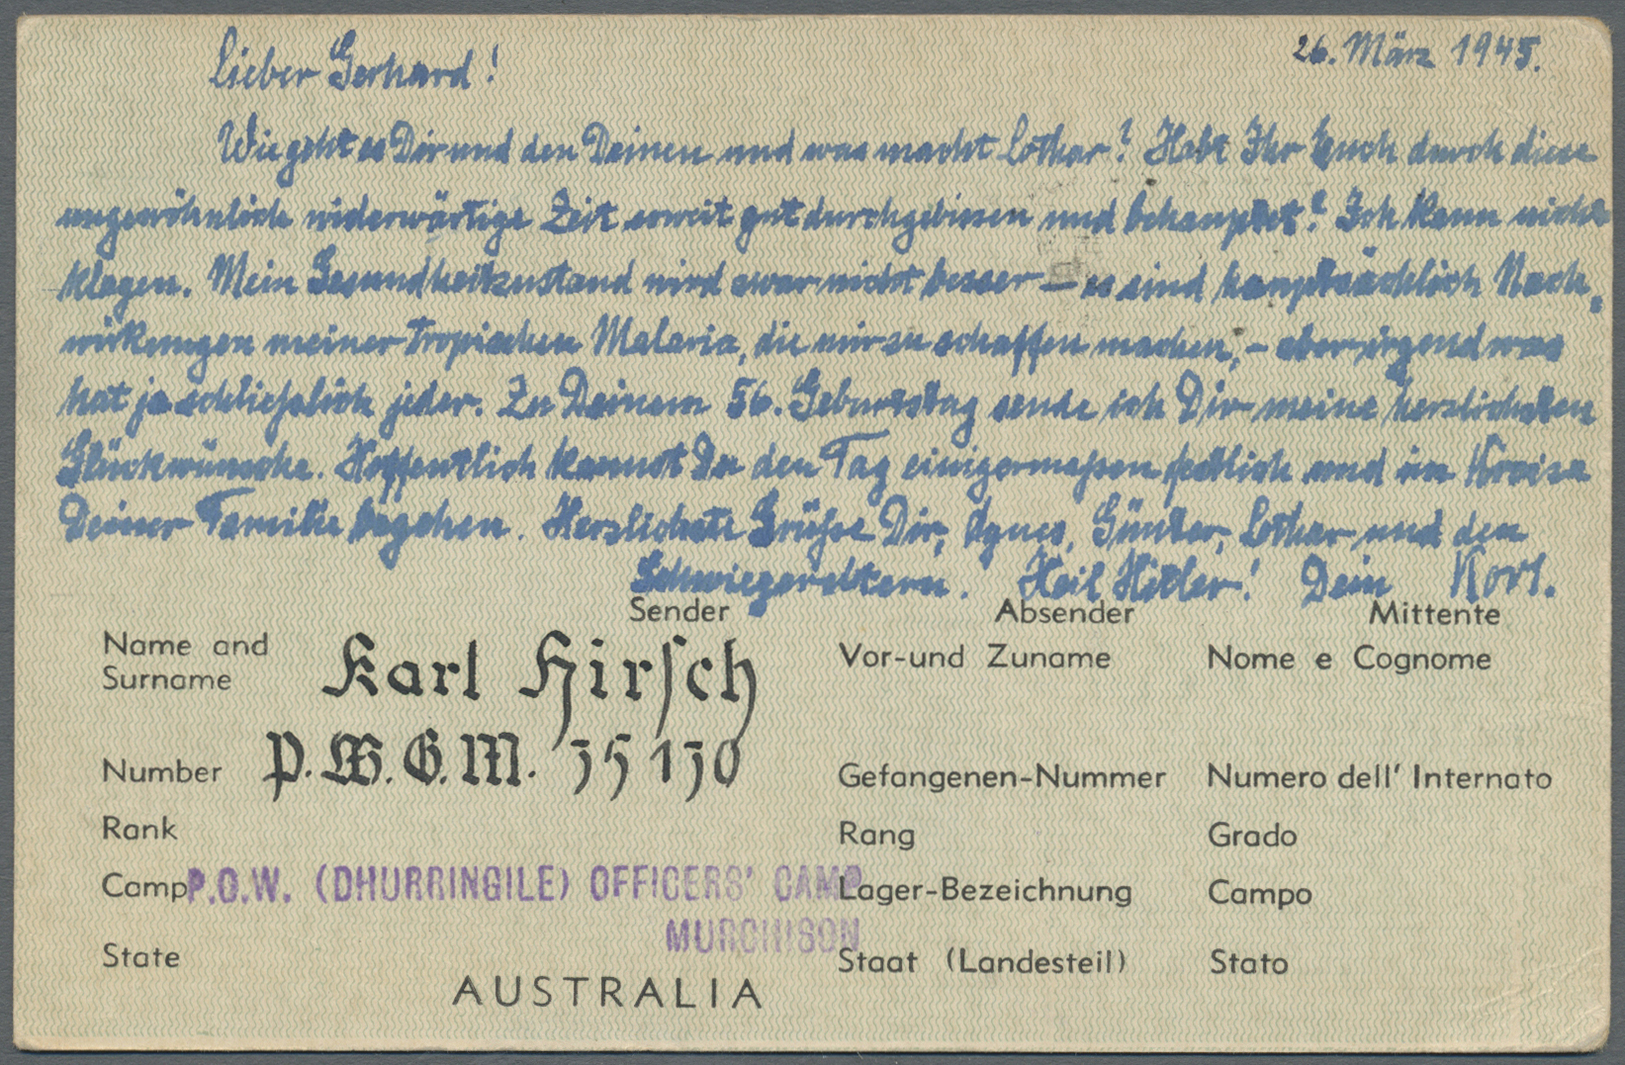 26. März 1945.
Lieber Gerhard!
Wie geht es Dir und den Deinen und was macht Lothar? Habt Ihr Euch durch diese
ungewöhnlich widerwärtige Zeit soweit gut durchgebissen und behauptet? Ich kann nicht
klagen. Mein Gesundheitszustand wird zwar nicht besser – es sind hauptsächlich Nach-
wirkungen meiner Tropischen Malaria, die mir zu schaffen machen, – aber irgend was
hat ja schließlich jeder. Zu Deinem 56. Geburtstag sende ich Dir meine herzlichsten
Glückwünsche. Hoffentlich kannst Du den Tag einigermaßen festlich und im Kreise
Deiner Familie begehen. Herzlichste Grüße Dir, Agnes, Günter, Lothar und den
Schwiegereltern. Heil Hitler! Dein Karl.
Sender Absender Mittente
Name and Surname Karl Hirsch Vor-und Zuname Nome e Cognome
Number P.W.G.M. 35130 Gefangenen-Nummer Numero dell' Internato
Rank Rang Grado
Camp P.O.W. (DHURRINGILE) OFFICERS' CAMP Lager-Bezeichnung Campo
MURCHISON
State Staat (Landesteil) Stato
AUSTRALIA